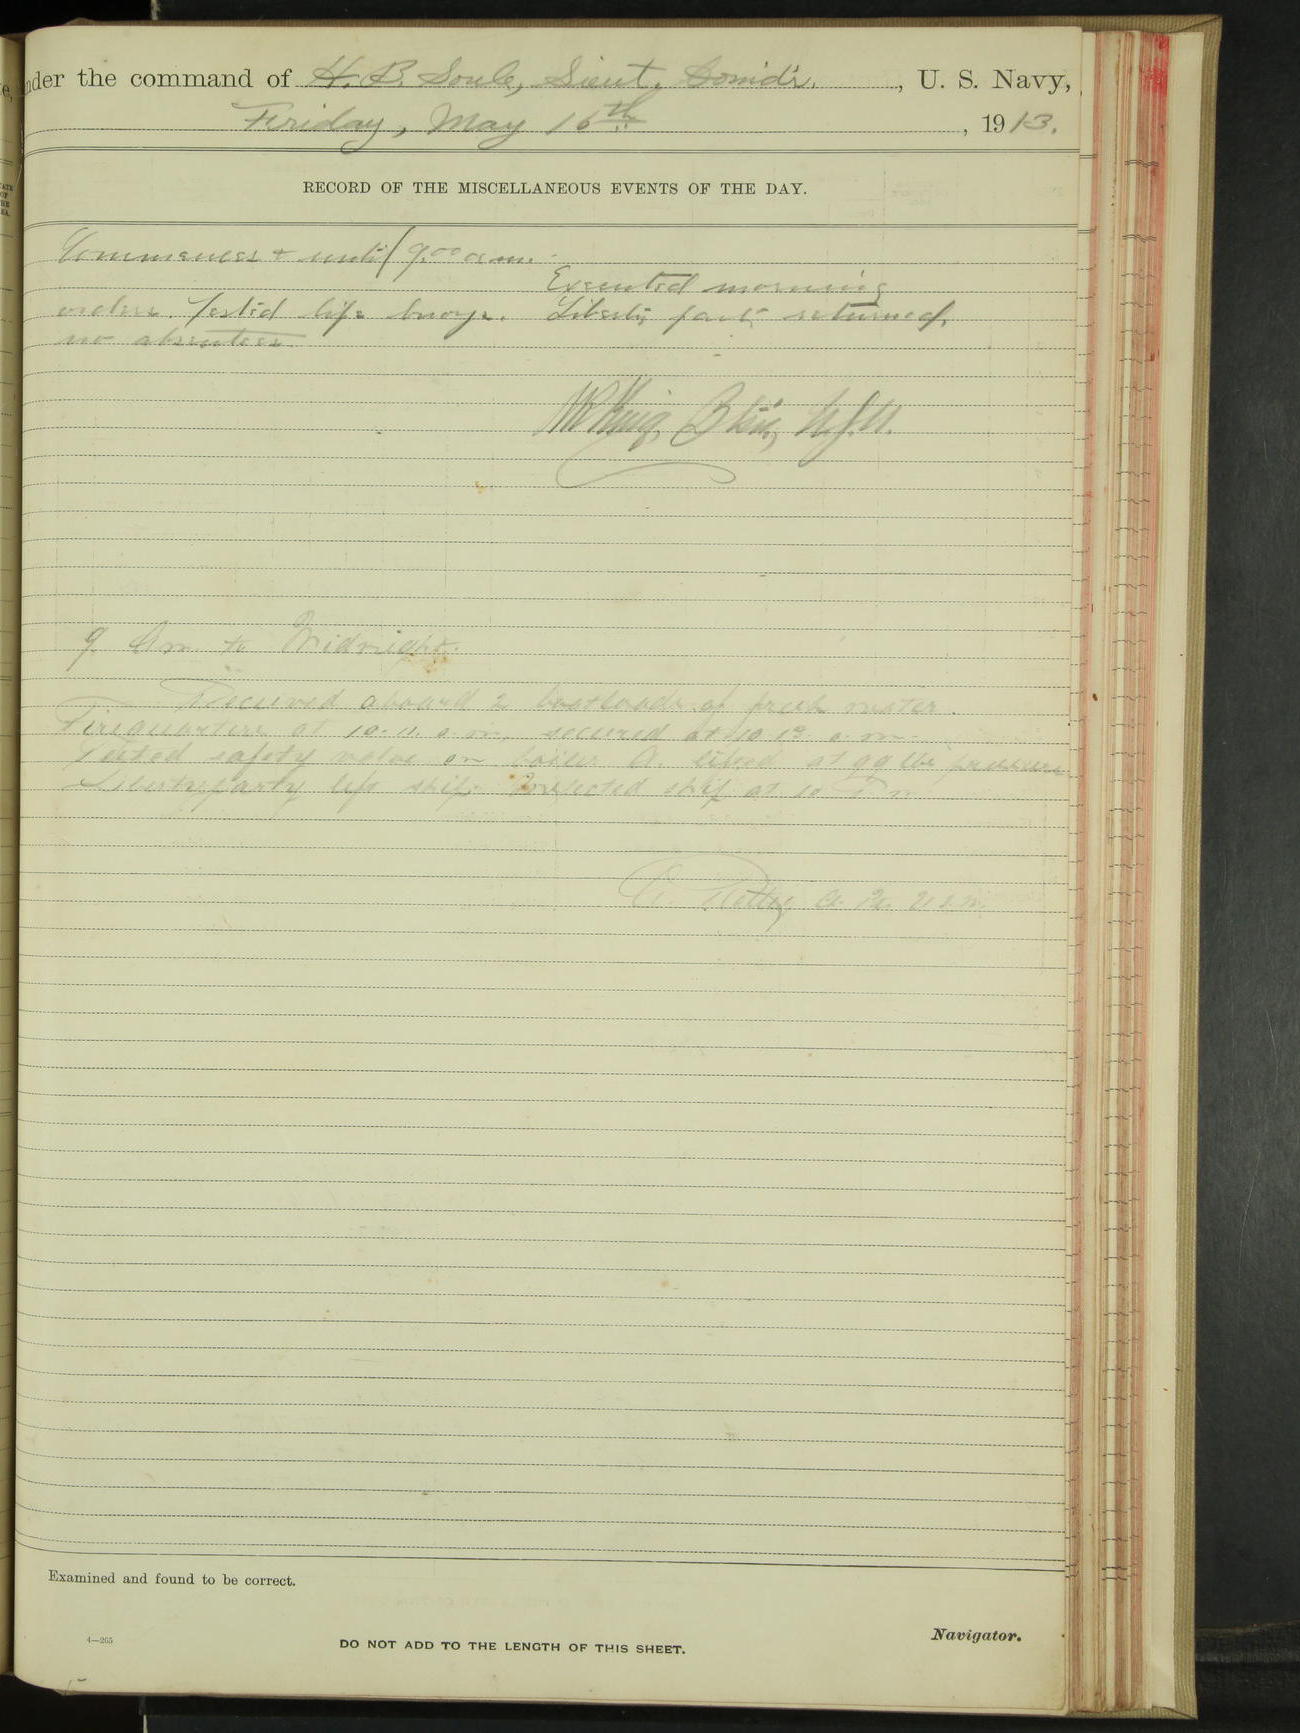 nder the command of H. B. Soule, Lieut. Comd'r., U. S. Navy,
Friday, May 16th, 1913.
RECORD OF THE MISCELLANEOUS EVENTS OF THE DAY.
Commences & until 9.00 a.m.
Executed morning
orders. Tested life buoys. Liberty party returned,
no absentees.
Btsn, U.S.N.
9. Am to Midnight.
Received aboard 2 boatloads of fresh water.
Firequarters at 10.11 a.m. secured at 10.19 a.m.
Tested safety valve on boiler A. lifted at 99 lbs pressure
Liberty party left ship. Inspected ship at 10 P m
U.S.N.
Examined and found to be correct.
4—265
DO NOT ADD TO THE LENGTH OF THIS SHEET.
Navigator.